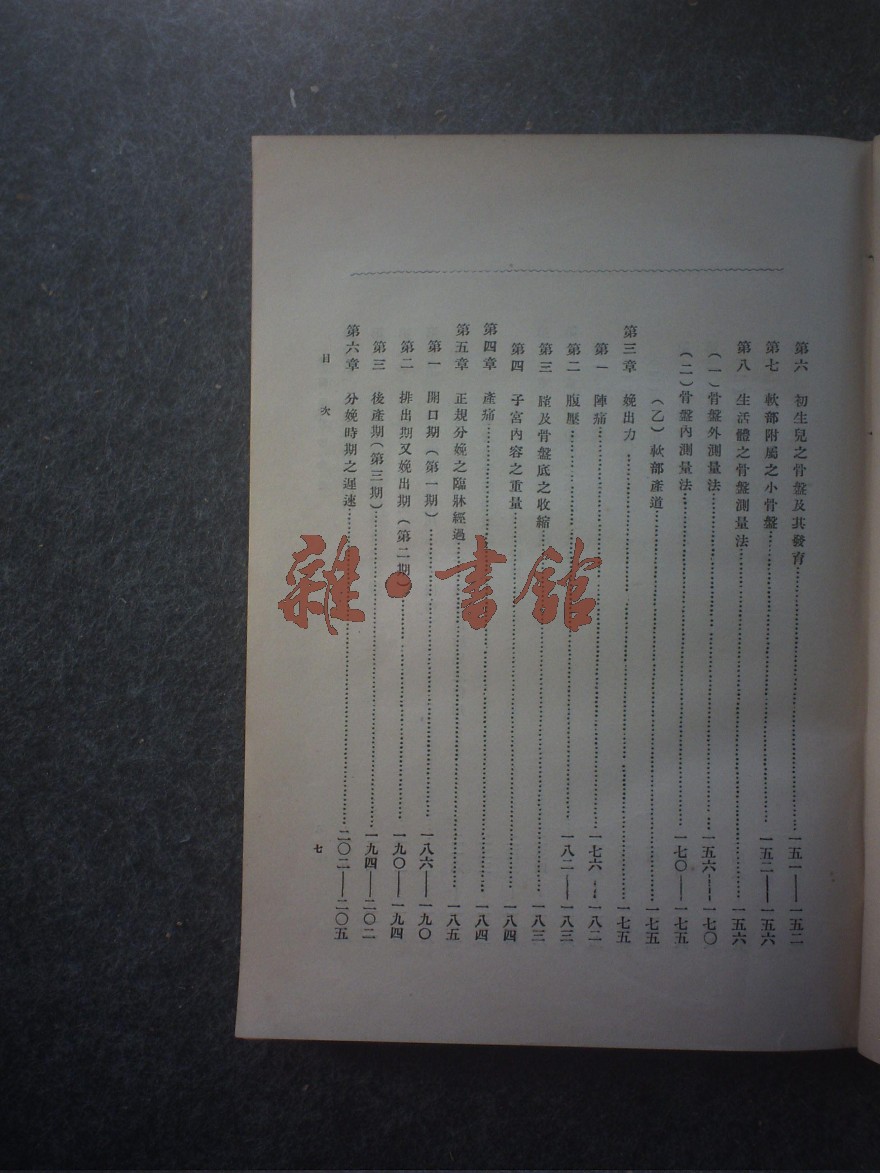 第六 初生兒之骨盤及其發育……一五一—一五二
第七 軟部附屬之小骨盤……一五二—一五六
第八 生活體之骨盤測量法……一五六
(一)骨盤外測量法……一五六—一七〇
(二)骨盤內測量法……一七〇—一七五
(乙)軟部產道……一七五
第三章 娩出力……一七五
第一 陣痛……一七六—一八二
第二 腹壓……一八二—一八三
第三 膣及骨盤底之收縮……一八三
第四 子宮內容之重量……一八四
第四章 產痛……一八四
第五章 正規分娩之臨牀經過……一八五
第一 開口期(第一期)……一八六—一九〇
第二 排出期又娩出期(第二期)……一九〇—一九四
第三 後產期(第三期)……一九四—二〇二
第六章 分娩時期之遲速……二〇二—二〇五
目次
七
雜·書館